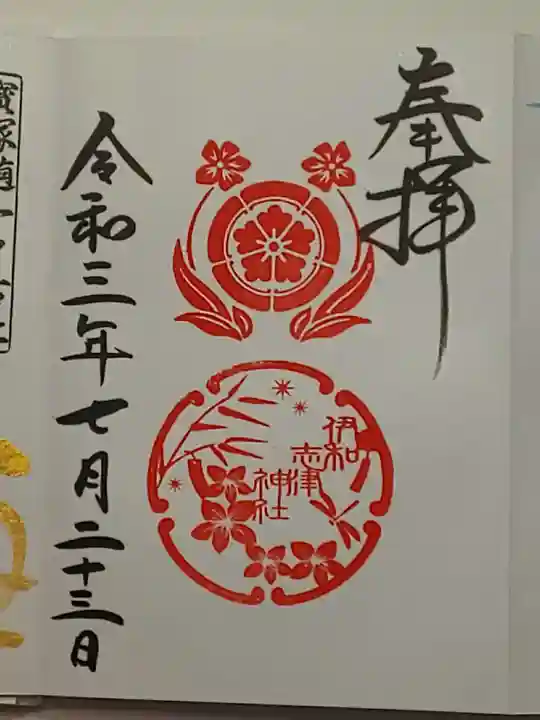 奉拝
伊和
志津
神社
令和三年七月二十三日